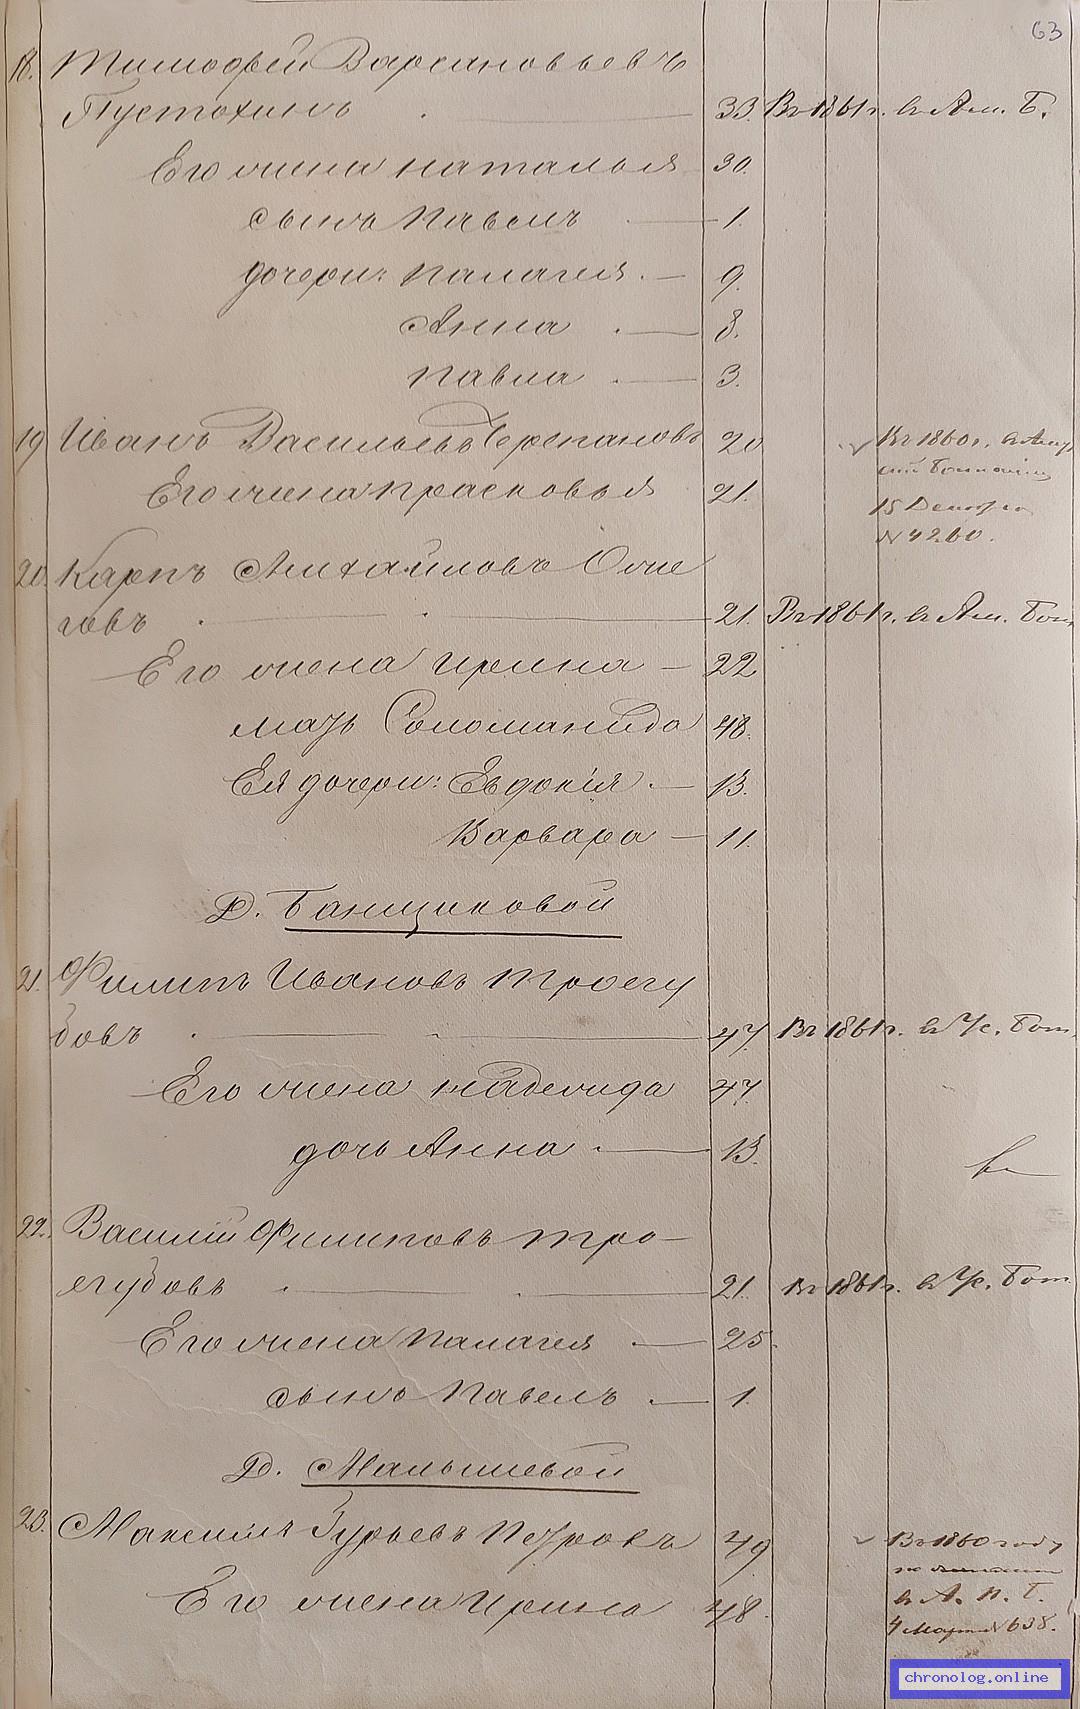 63
18. Тимофей Варсановьевъ
Пустохинъ 33. Въ 1861 г. въ Ам. Б.
Его жена Наталья 30.
сынъ Павелъ 1.
дочери: Палагея 9.
Анна 8.
Павла 3.
19 Иванъ Васильевъ Черепановъ 20 Въ 1860 г. въ
Его жена Прасковья 21.
15 Декабря
N 4260.
20. Карпъ Михайловъ Оже
говъ 21. Въ 1861 г. въ Ам. Бат.
Его жена Ирина 22
мать Соломанида 48.
Ея дочери: Евдокія 13.
Варвара 11.
Д. Банщиковой
21. Филипъ Ивановъ Троегу
бовъ 47. Въ 1861 г. въ Бат.
Его жена Надежда 47.
дочь Анна 13.
22. Василій Филиповъ Тро-
егубовъ 21. Въ 1861 г. въ Бат.
Его жена Палагея 25.
сынъ Павелъ 1.
Д. Малышевой
23. Максимъ Гурьевъ Петровъ 49 Въ 1860 году
Его жена Ирина 48. въ А. П. Б.
4 Марта N 638.
chronolog.online